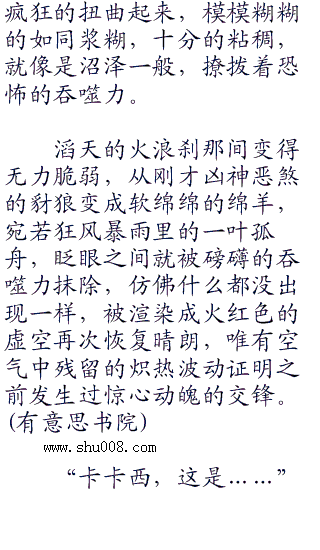 疯狂的扭曲起来，模模糊糊
的如同浆糊，十分的粘稠，
就像是沼泽一般，撩拨着恐
怖的吞噬力。
滔天的火浪刹那间变得
无力脆弱，从刚才凶神恶煞
的豺狼变成软绵绵的绵羊，
宛若狂风暴雨里的一叶孤
舟，眨眼之间就被磅礴的吞
噬力抹除，仿佛什么都没出
现一样，被渲染成火红色的
虚空再次恢复晴朗，唯有空
气中残留的炽热波动证明之
前发生过惊心动魄的交锋。
(有意思书院)
www.shu008.com
“卡卡西，这是……”